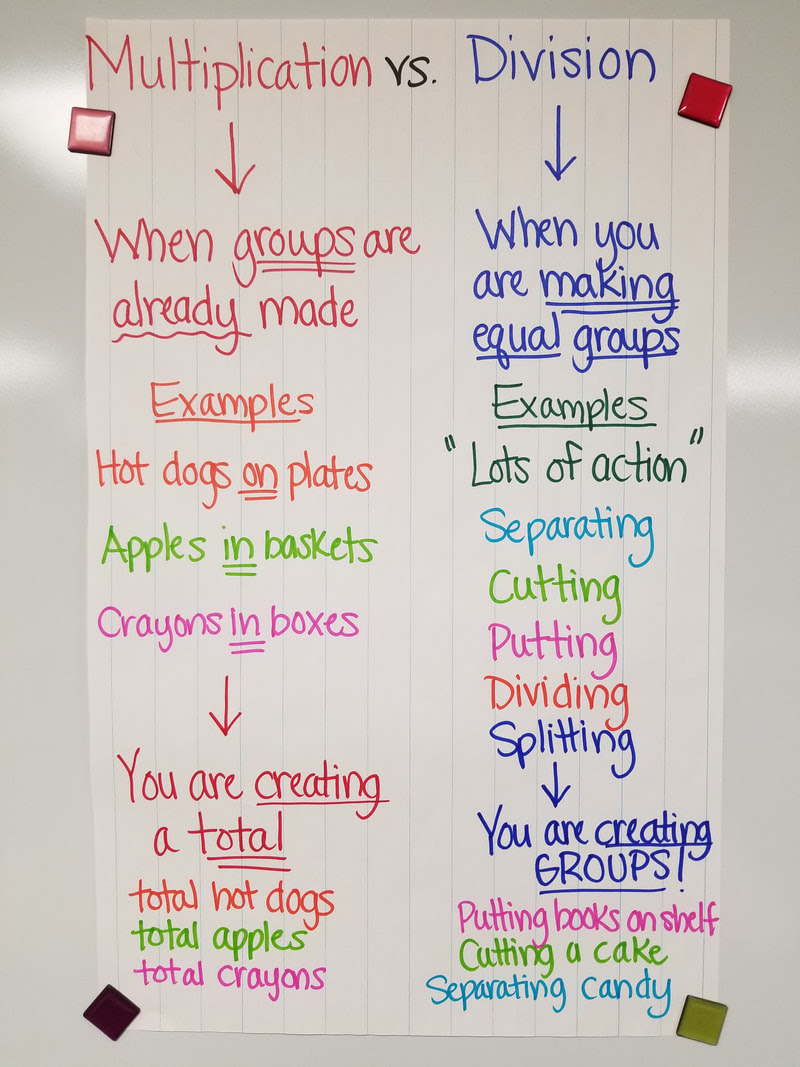 Multiplication vs. Division
When groups are
already made
Examples
Hot dogs on plates
Apples in baskets
Crayons in boxes
You are creating
a total
total hot dogs
total apples
total crayons
When you
are making
equal groups
Examples
"Lots of action"
Separating
Cutting
Putting
Dividing
Splitting
You are creating
GROUPS!
Putting books on shelf
Cutting a cake
Separating candy